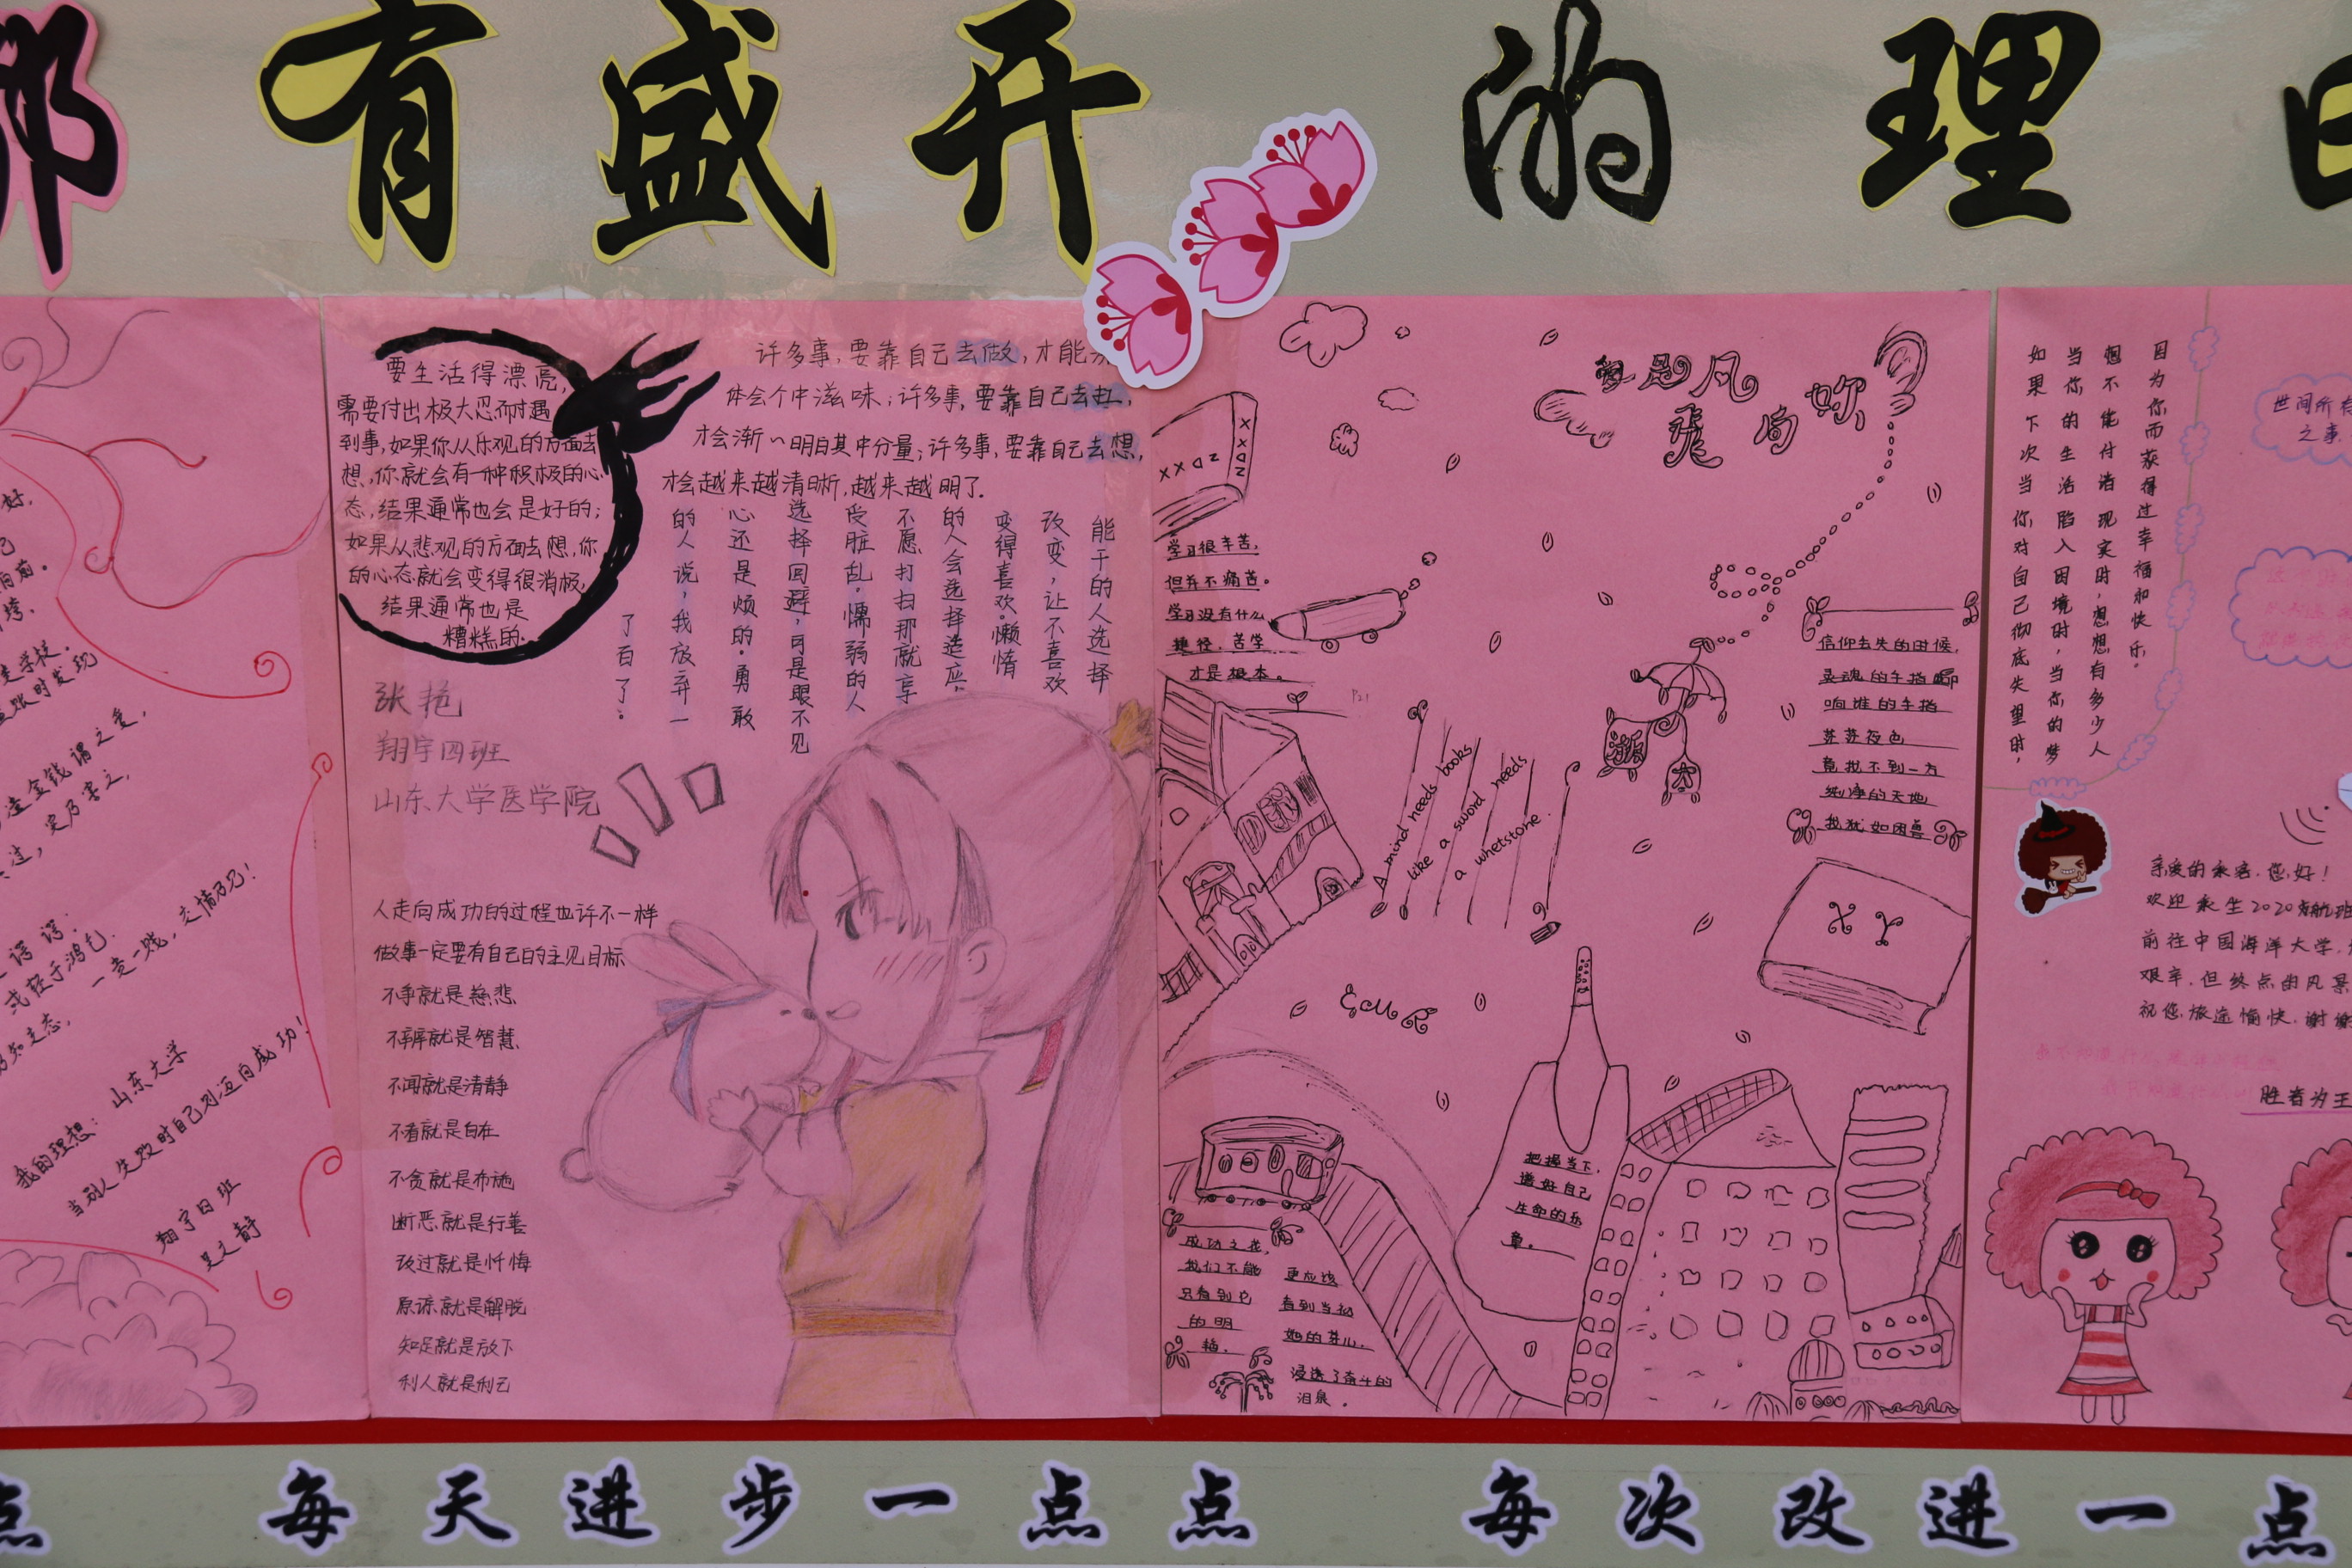 都有盛开的理由
好.
己
向前。
垮.
造学校.
账时发现
逢金钱谓之爱,
实乃害之.
或轻于鸿毛.
一贵一贱,交情乃见!
乃知交态,
我的理想: 山东大学
当别人失败时自己勿迈自成功!
翔宇四班
吴文静
要生活得漂亮,
需要付出极大忍耐遇
到事,如果你从乐观的方面去
想,你就会有一种积极的心
态,结果通常也会是好的;
如果从悲观的方面去想,你
的心态就会变得很消极,
结果通常也是
糟糕的.
许多事,要靠自己去做,才能
体会个中滋味;许多事,要靠自己去扛,
才会渐~明白其中分量;许多事,要靠自己去想,
才会越来越清晰,越来越明了.
能干的人选择
改变,让不喜欢
变得喜欢.懒惰
的人会选择适应,
不愿打扫那就享
受脏乱,懦弱的人
选择回避,可是眼不见
心还是烦的.勇敢
的人说,我放弃一
了百了。
张艳
翔宇四班
山东大学医学院
人走向成功的过程也许不一样
做事一定要有自己的主见目标
不争就是慈悲
不辩就是智慧
不闻就是清静
不看就是自在
不贪就是布施
断恶就是行善
改过就是忏悔
原谅就是解脱
知足就是放下
利人就是利己
飞向你
学习很辛苦,
但并不痛苦。
学习没有什么
捷径.苦学
才是根本。
浙
大
信仰丢失的时候,
灵魂的手指
响谁的手指
苏苏夜色
竟找不到一方
纯净的天地
我犹如困兽
A mind needs books
like a sword needs
a whetstone.
X Y
把握当下,
谱好自己
生命的乐
章。
成功之花,
我们不能
只看到它
的明
艳.
更应该
看到当初
她的芽儿,
浸透了奋斗的
泪泉.
因为你而获得过幸福和快乐。
想不能付诸现实时,想想有多少人
当你的生活陷入困境时,当你的梦
如果下次当你对自己彻底失望时,
世间所有
之事
亲爱的乘客.您好!
欢迎乘坐2020航班
前往中国海洋大学.
艰辛.但终点的风景
祝您旅途愉快.谢谢
胜者为王
点 每天进步一点点 每次改进一点